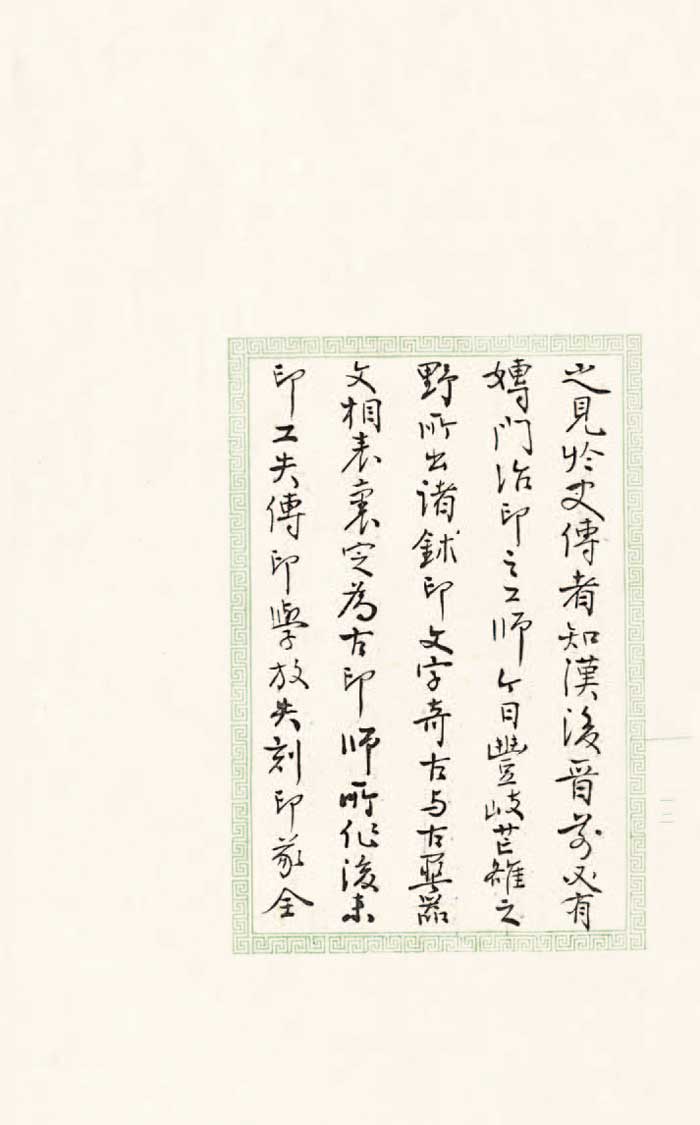 之見於史傳者知漢後晉前必有
專門治印之工師今日豐岐芒雒之
野所出諸鉥印文字奇古与古彝器
文相表裏定為古印師所作後來
印工失傳印學放失刻印家全
一二